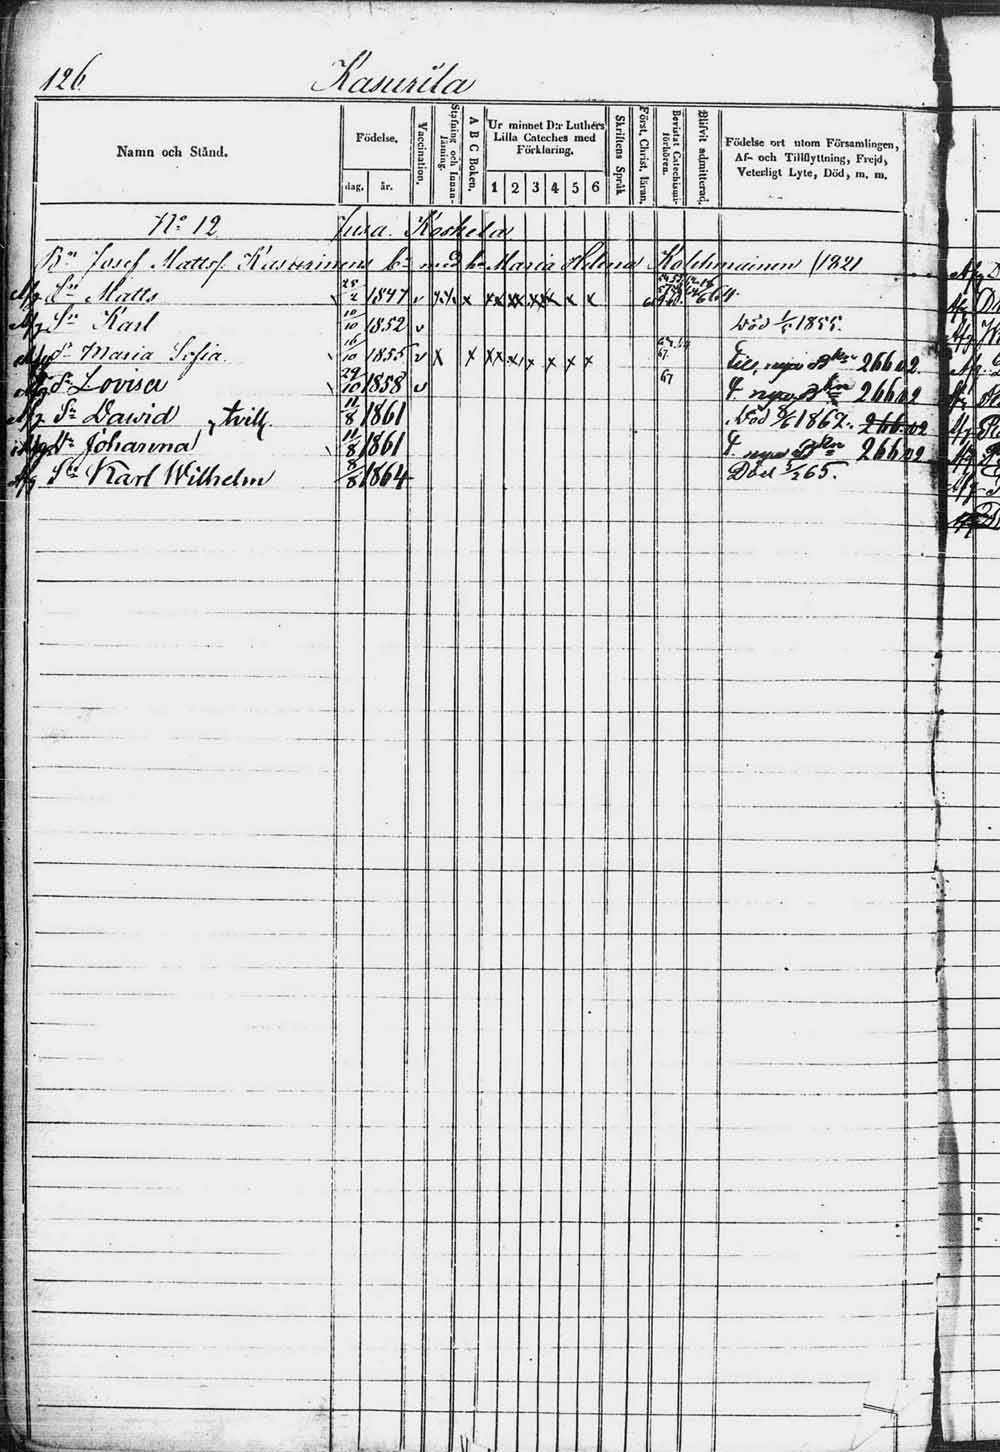 126. Kasurila
Namn och Stånd.
Födelse.
dag. år.
Vaccination.
Stafning och Innanläsning.
A B C Boken.
Ur minnet D:r Luthers Lilla Cateches med Förklaring.
1 2 3 4 5 6
Skriftens Språk
Först. Christ. läran.
Bevistat Catechismiförhören.
Blifvit admitterad.
Födelse ort utom Församlingen, Af- och Tillflyttning, Frejd, Veterligt Lyte, Död, m. m.
No 12 Jusa Koskela
Bn Josef Mattsf. Kasurinens bn med h. Maria Helena Kolehmainen /1821
Afg Sn Matts 28/2 1847 v x x x x x x x
Afg Sn Karl 10/10 1852 v Död 1855.
Afg Dr Maria Sofia 16/10 1855 v x x x x x x x x 67. till nya Bkn 266.02.
Afg Dr Lovisa 29/10 1858 v 67 t. nya Bkn 266.02
Afg Sn Dawid } tvill. 11/8 1861 Död 1867. 266.02
Afg Dr Johanna 11/8 1861 t. nya Bkn 266.02
Afg Sn Karl Wilhelm 8/8 1864 Död 3/2 65.